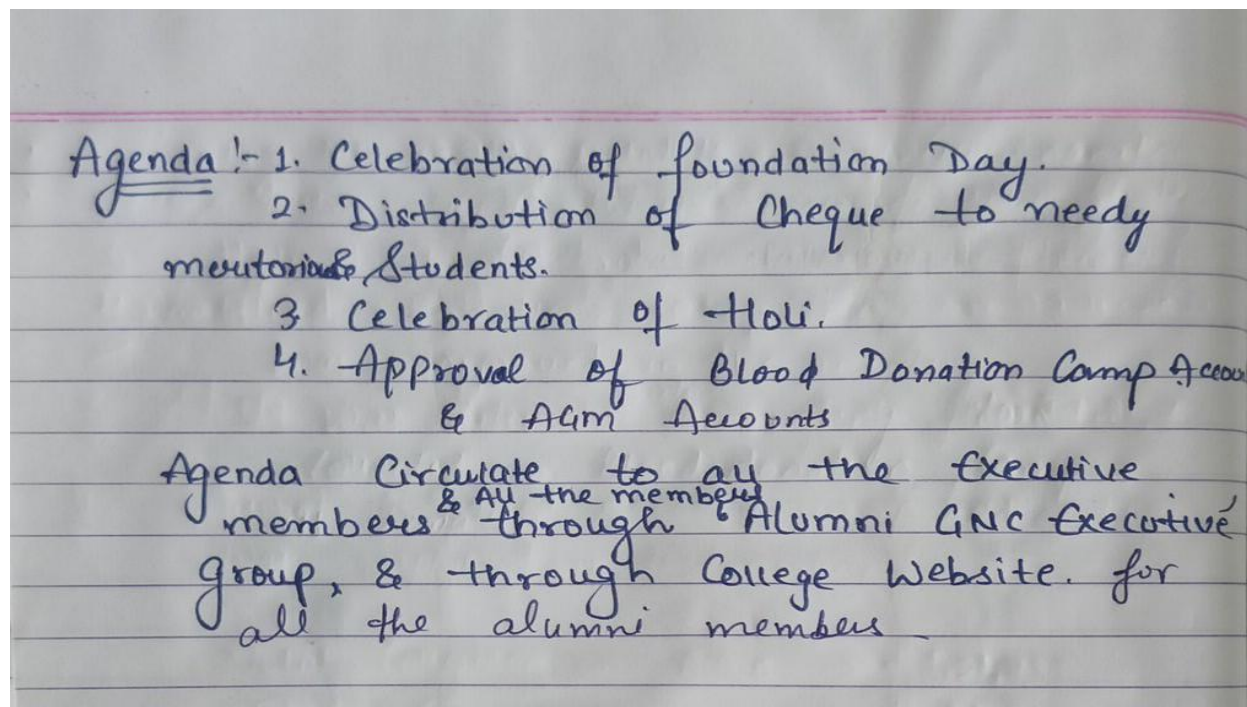 Agenda :- 1. Celebration of foundation Day.
2. Distribution of Cheque to needy
Students.
3 Celebration of Holi.
4. Approval of Blood Donation Camp Accou
& AGM Accounts
Agenda Circulate to all the Executive
& All the members
members through Alumni GNC Executive
group, & through College Website. for
all the alumni members